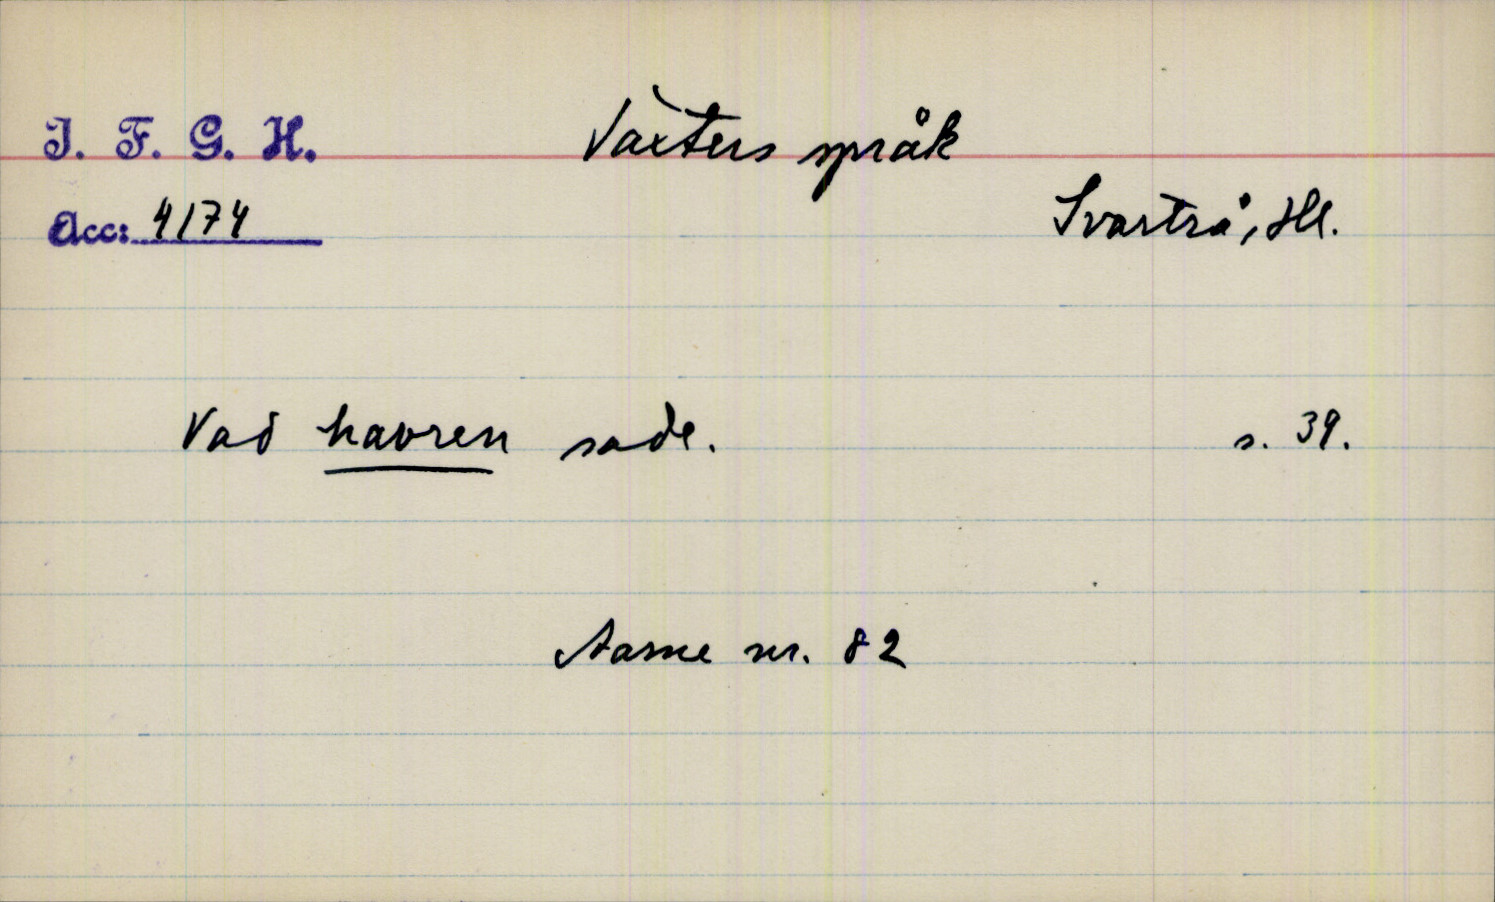 I. F. G. H.
Växters språk
Acc: 4174
Svartrå, Hl.
Vad havren sade.
s. 39.
Aarne nr. 82